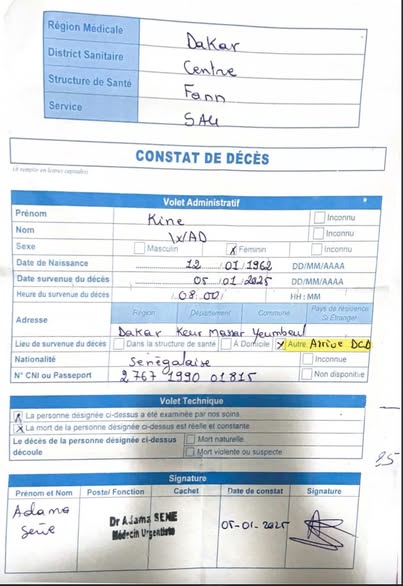 Région Médicale Dakar
District Sanitaire Centre
Structure de Santé Fann
Service SAU
CONSTAT DE DÉCÈS
(à remplir en lettres capitales)
Volet Administratif
Prénom Kine Inconnu
Nom Inconnu
Sexe Masculin X Féminin Inconnu
Date de Naissance 12 / 01 / 1962 DD/MM/AAAA
Date survenue du décès 05 / 01 / 2025 DD/MM/AAAA
Heure du survenue du décès 08:00 HH : MM
Région Département Commune Pays de résidence Si Étranger
Adresse
Dakar Keur Massar Yeumbeul
Lieu de survenue du décès Dans la structure de santé À Domicile X Autre, Arrivé DCD
Nationalité Sénégalaise Inconnue
N° CNI ou Passeport 2 767 1990 01815 Non disponible
Volet Technique
X La personne désignée ci-dessus a été examinée par nos soins.
X La mort de la personne désignée ci-dessus est réelle et constante.
Le décès de la personne désignée ci-dessus découle
Mort naturelle
Mort violente ou suspecte
Signature
Prénom et Nom Poste/ Fonction Cachet Date de constat Signature
Adama Sene
Dr Adama SENE
Médecin Urgentiste
05-01-2025